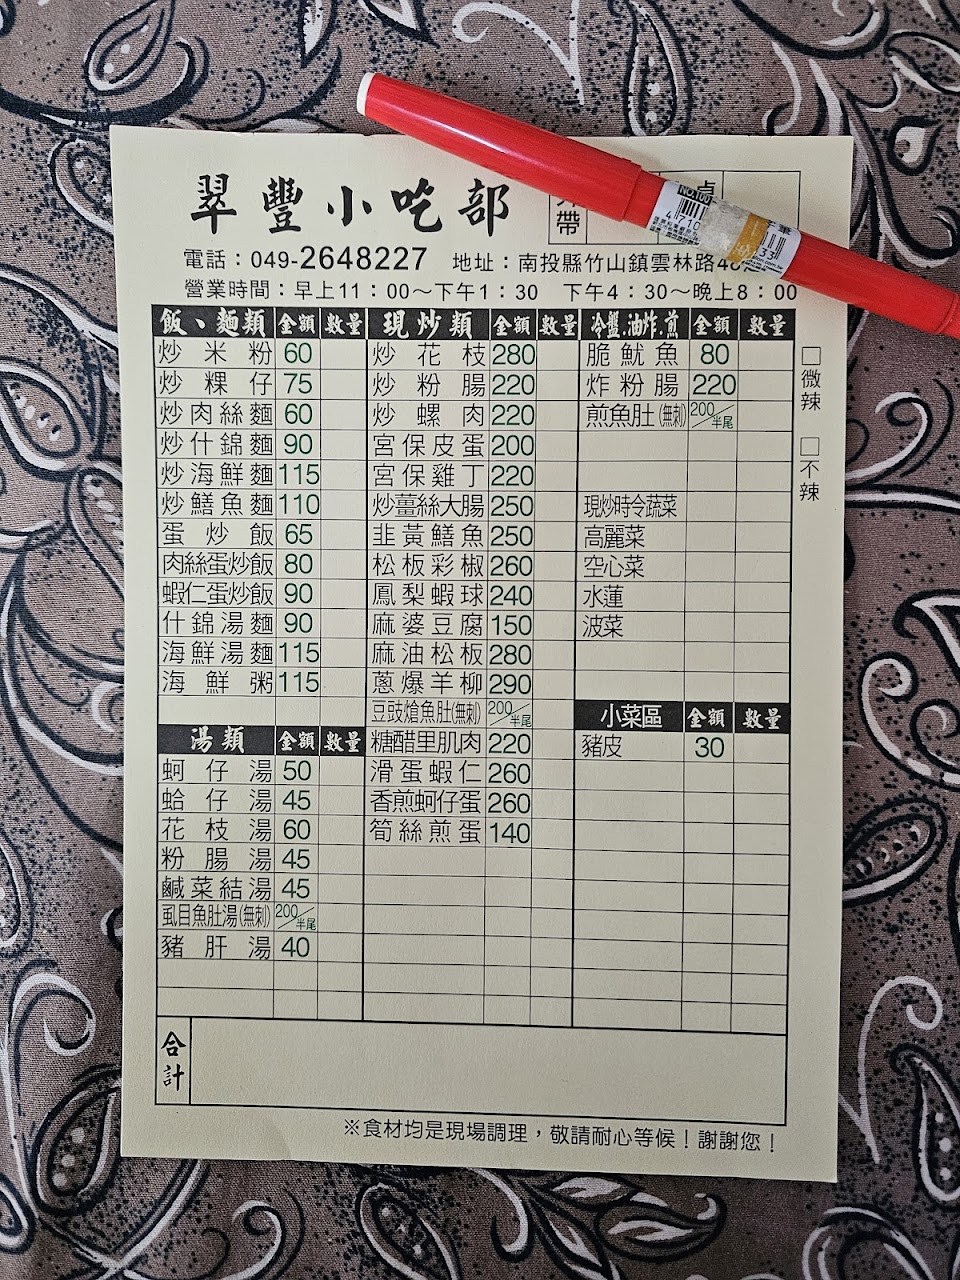 翠豐小吃部
帶
電話：049-2648227 地址：南投縣竹山鎮雲林路
營業時間：早上11：00～下午1：30 下午4：30～晚上8：00
飯、麵類 金額 數量
炒米粉 60
炒粿仔 75
炒肉絲麵 60
炒什錦麵 90
炒海鮮麵 115
炒鱔魚麵 110
蛋炒飯 65
肉絲蛋炒飯 80
蝦仁蛋炒飯 90
什錦湯麵 90
海鮮湯麵 115
海鮮粥 115
湯類 金額 數量
蚵仔湯 50
蛤仔湯 45
花枝湯 60
粉腸湯 45
鹹菜結湯 45
虱目魚肚湯(無刺) 200/半尾
豬肝湯 40
現炒類 金額 數量
炒花枝 280
炒粉腸 220
炒螺肉 220
宮保皮蛋 200
宮保雞丁 220
炒薑絲大腸 250
韭黃鱔魚 250
松板彩椒 260
鳳梨蝦球 240
麻婆豆腐 150
麻油松板 280
蔥爆羊柳 290
豆豉熗魚肚(無刺) 200/半尾
糖醋里肌肉 220
滑蛋蝦仁 260
香煎蚵仔蛋 260
筍絲煎蛋 140
冷盤.油炸.煎 金額 數量
脆魷魚 80
炸粉腸 220
煎魚肚(無刺) 200/半尾
現炒時令蔬菜
高麗菜
空心菜
水蓮
波菜
小菜區 金額 數量
豬皮 30
□微辣
□不辣
合計
※食材均是現場調理，敬請耐心等候！謝謝您！
NO.100